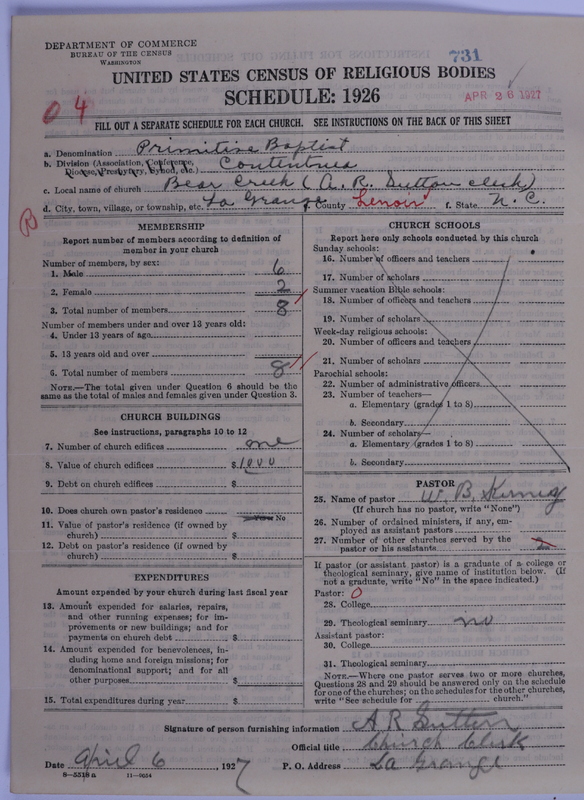 DEPARTMENT OF COMMERCE
BUREAU OF THE CENSUS
WASHINGTON
731
UNITED STATES CENSUS OF RELIGIOUS BODIES
SCHEDULE: 1926
APR 26 1927
04
FILL OUT A SEPARATE SCHEDULE FOR EACH CHURCH. SEE INSTRUCTIONS ON THE BACK OF THIS SHEET
a. Denomination Primitive Baptist
b. Division (Association, Conference, Diocese, Presbytery, Synod, etc.) Contentnea
c. Local name of church Bear Creek (A. R. Sutton clerk)
d. City, town, village, or township, etc. La Grange County Lenoir f. State N. C.
MEMBERSHIP
Report number of members according to definition of
member in your church
Number of members, by sex:
1. Male 6
2. Female 2
3. Total number of members 8
Number of members under and over 13 years old:
4. Under 13 years of age
5. 13 years old and over
6. Total number of members 8
NOTE.—The total given under Question 6 should be the
same as the total of males and females given under Question 3.
CHURCH BUILDINGS
See instructions, paragraphs 10 to 12
7. Number of church edifices one
8. Value of church edifices $ 1000
9. Debt on church edifices $
10. Does church own pastor's residence? No
11. Value of pastor's residence (if owned by
church) $
12. Debt on pastor's residence (if owned by
church) $
EXPENDITURES
Amount expended by your church during last fiscal year
13. Amount expended for salaries, repairs,
and other running expenses; for im-
provements or new buildings; and for
payments on church debt $
14. Amount expended for benevolences, in-
cluding home and foreign missions; for
denominational support; and for all
other purposes $
15. Total expenditures during year $
CHURCH SCHOOLS
Report here only schools conducted by this church
Sunday schools:
16. Number of officers and teachers
17. Number of scholars
Summer vacation Bible schools:
18. Number of officers and teachers
19. Number of scholars
Week-day religious schools:
20. Number of officers and teachers
21. Number of scholars
Parochial schools:
22. Number of administrative officers
23. Number of teachers—
a. Elementary (grades 1 to 8)
b. Secondary
24. Number of scholars—
a. Elementary (grades 1 to 8)
b. Secondary
PASTOR
25. Name of pastor W. B.
(If church has no pastor, write "None")
26. Number of ordained ministers, if any, em-
ployed as assistant pastors
27. Number of other churches served by the
pastor or his assistants
If pastor (or assistant pastor) is a graduate of a college or
theological seminary, give name of institution below. (If
not a graduate, write "No" in the space indicated.)
Pastor: 0
28. College
29. Theological seminary no
Assistant pastor:
30. College
31. Theological seminary
NOTE.—Where one pastor serves two or more churches,
Questions 28 and 29 should be answered only on the schedule
for one of the churches; on the schedules for the other churches,
write "See schedule for church."
Signature of person furnishing information A R Sutton
Official title Church Clerk
Date April 6 1927 P. O. Address La Grange
8—5518 a 11—9054